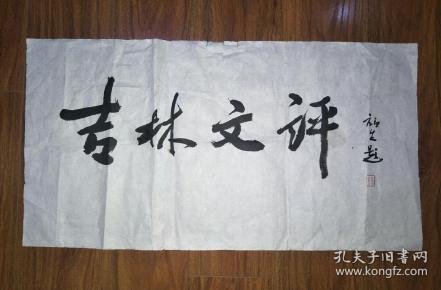 吉林文评
孔夫子旧书网
www.kongfz.com